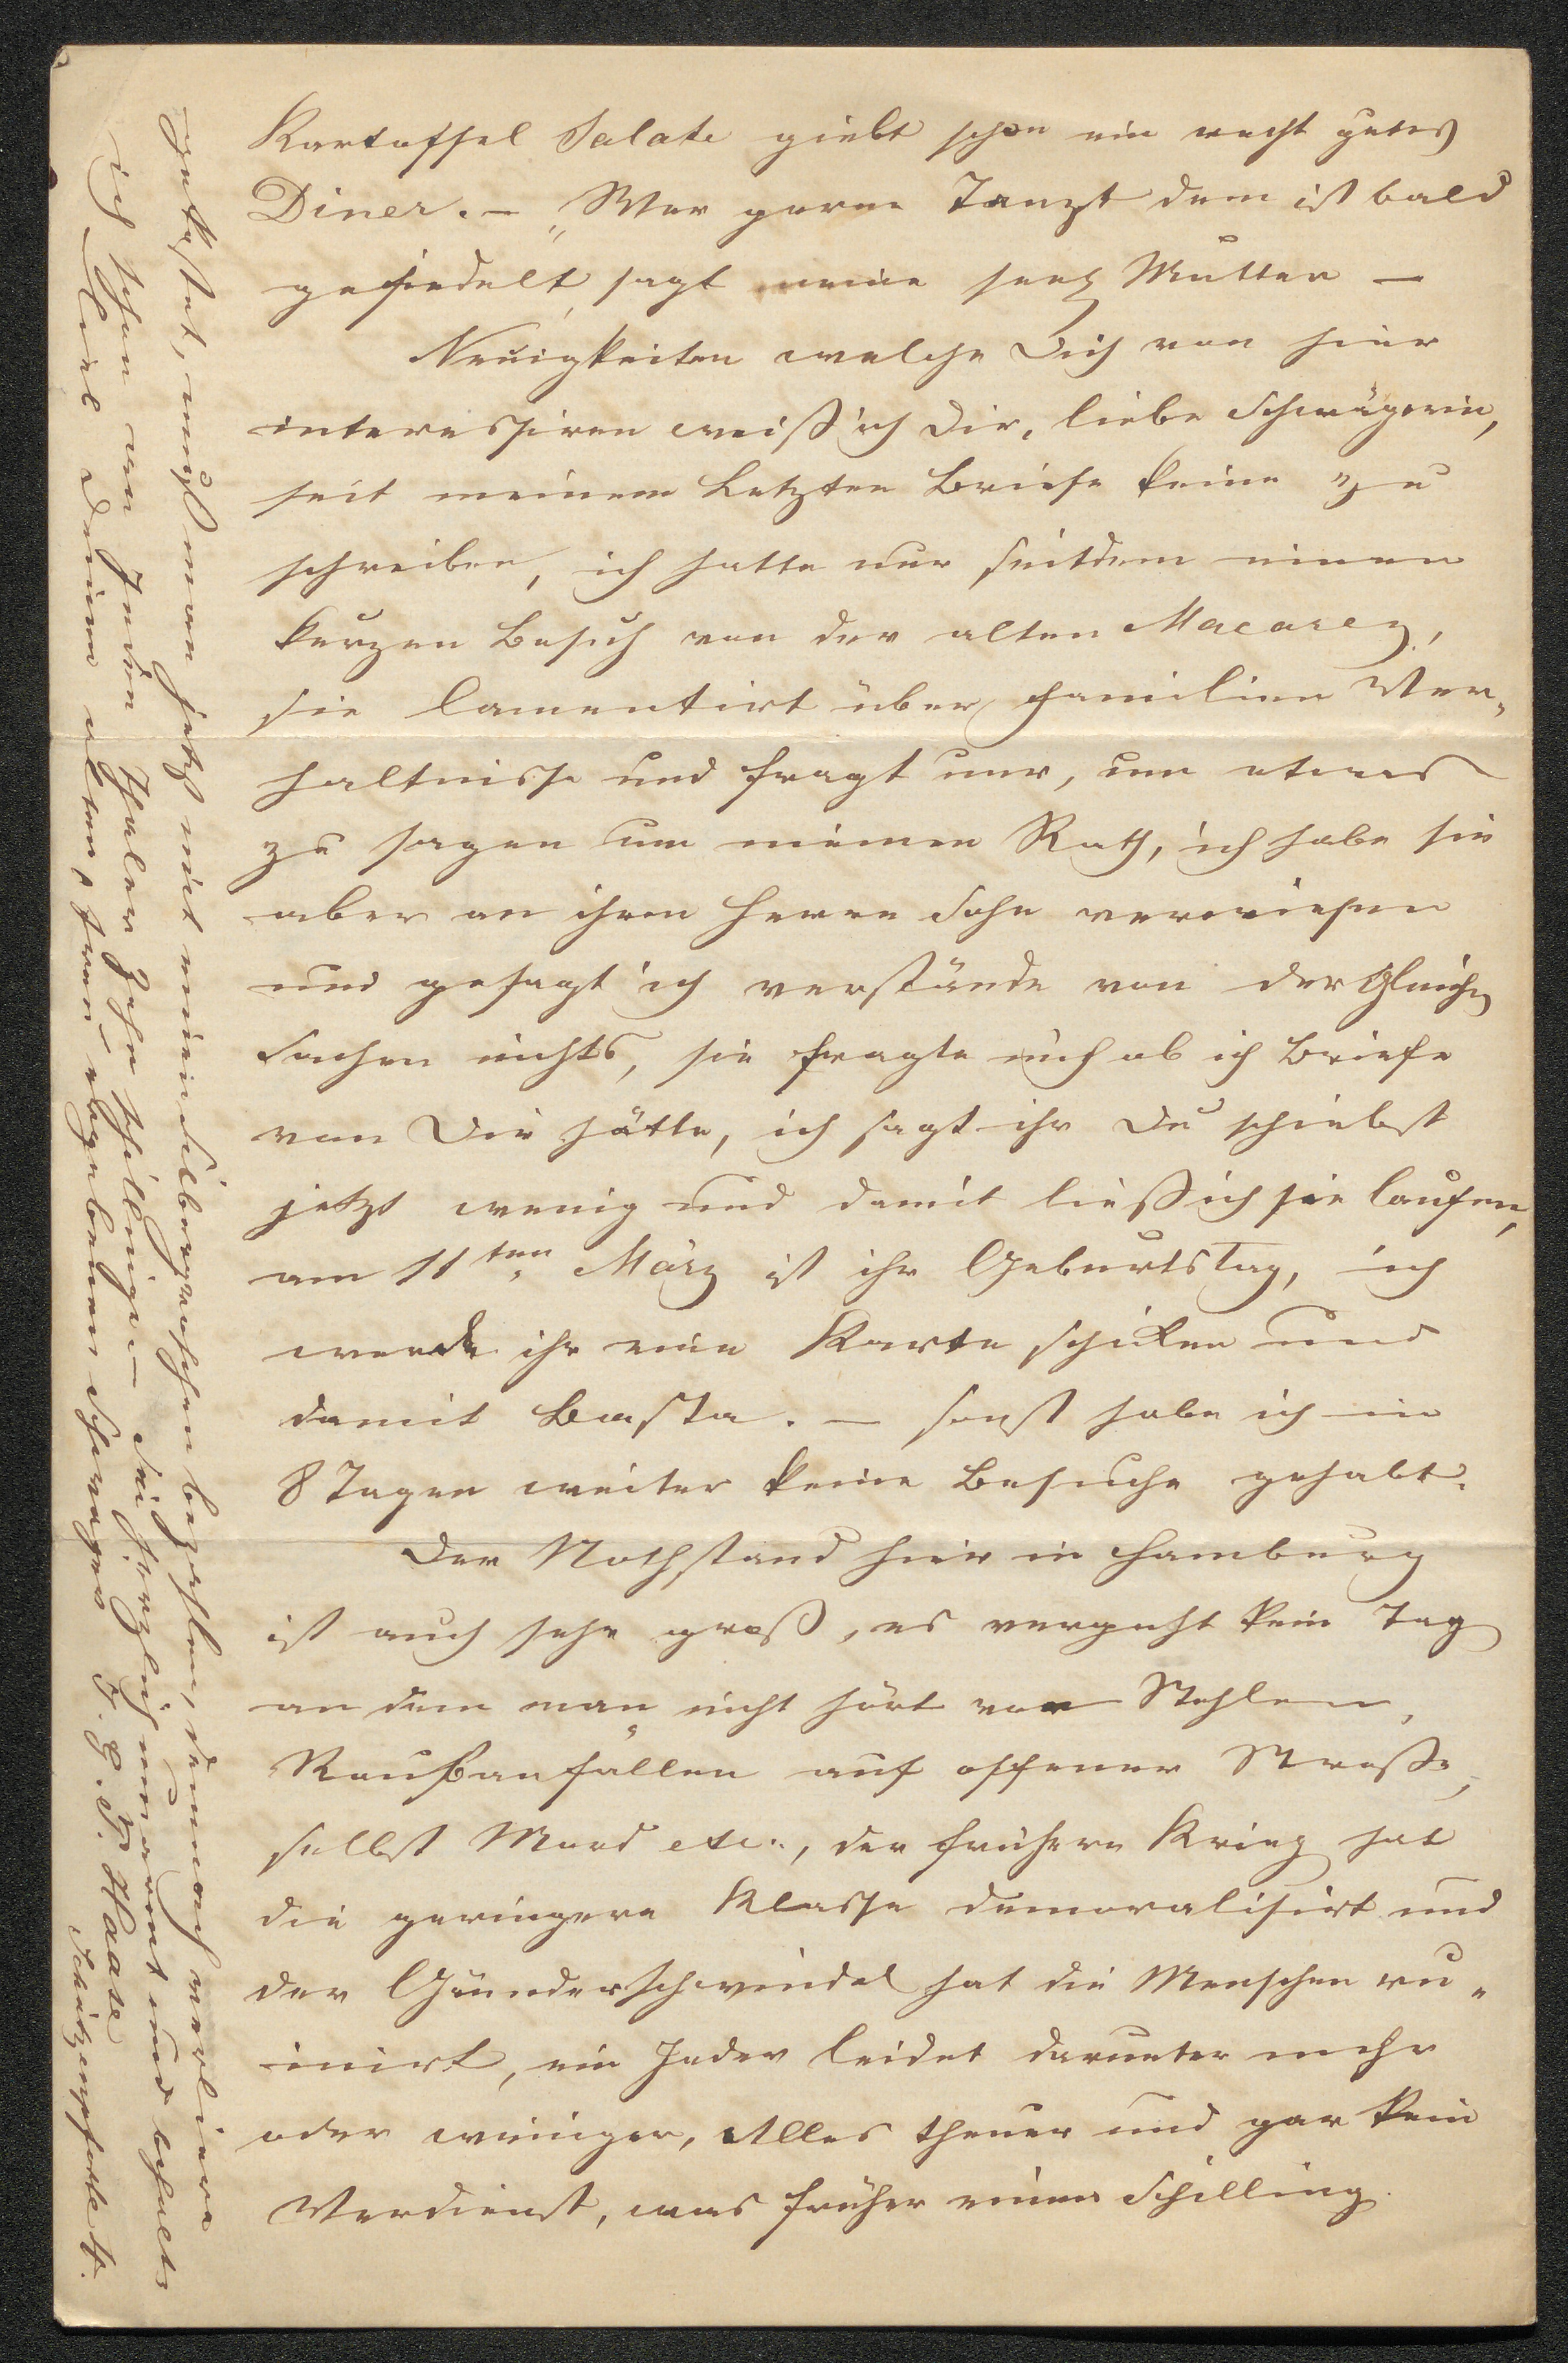 Kartoffel Salate giebt schon ein recht gutes
Diner. – „Wer gerne Tanzt dem ist bald
gefiedelt, sagt meine seel Mutter –
Neuigkeiten welche Dich von hier
interessiren weiß ich Dir, liebe Schwägerin,
seit meinem Letzten Briefe keine zu
schreiben, ich hatte nur seitdem einen
kurzen Besuch von der alten Macarez,
sie lamentirt über Familien Ver„
haltnisse und fragt nur, um etwas
zu sagen um meinen Rath, ich habe sie
aber an ihren Herrn Sohn verwiesen
und gesagt ich verstände von dergleichen
Sachen nichts, sie fragte mich ob ich Briefe
von Dir hätte, ich sagt ihr Du schiebst
jetzt wenig und damit ließ ich sie laufen,
am 11ten März ist ihr GeburtsTag, ich
werde ihr eine Karte schicken und
damit Basta. – sonst habe ich in
8 Tagen weiter keine Besuche gehabt.
Der Nothstand hier in Hamburg
ist auch sehr groß, es vergeht kein Tag
an dem man nicht hört von Stehlen,
Raubanfällen auf offener Straße,
selbst Mord etc., der frühere Krieg hat
die geringere Klasse demoralisirt und
der Gründerschwindel hat die Menschen ru„
inirt, ein Jeder leidet darunter mehr
oder weiniger, Alles theuer und gar kein
Verdienst, was früher einen Schilling
gekostet, muß man jetzt mit einen Silbergroschen bezahlen, demnach verliere
ich schon an jeden Thaler Zehn Schillinge. – Sei herzlich umarmt und behalte
Lieb Deinen alten, treu ergebenen Schwager F. G. F. Haase
Schützenpforte 4.